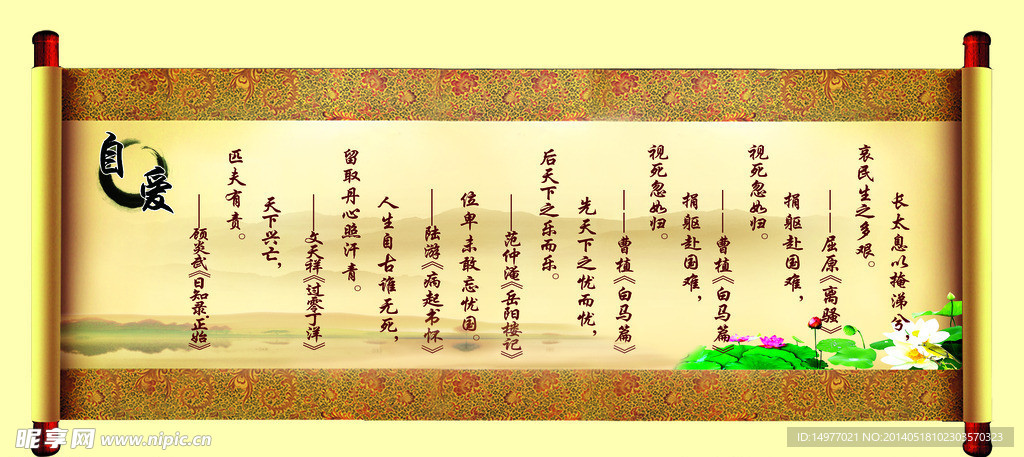 长太息以掩涕兮，
哀民生之多艰。
——屈原《离骚》
捐躯赴国难，
视死忽如归。
——曹植《白马篇》
捐躯赴国难，
视死忽如归。
——曹植《白马篇》
先天下之忧而忧，
后天下之乐而乐。
——范仲淹《岳阳楼记》
位卑未敢忘忧国。
——陆游《病起书怀》
人生自古谁无死，
留取丹心照汗青。
——文天祥《过零丁洋》
天下兴亡，
匹夫有责。
——顾炎武《日知录.正始》
自爱
昵享网 www.nipic.cn
ID:14977021 NO:20140518102303570323